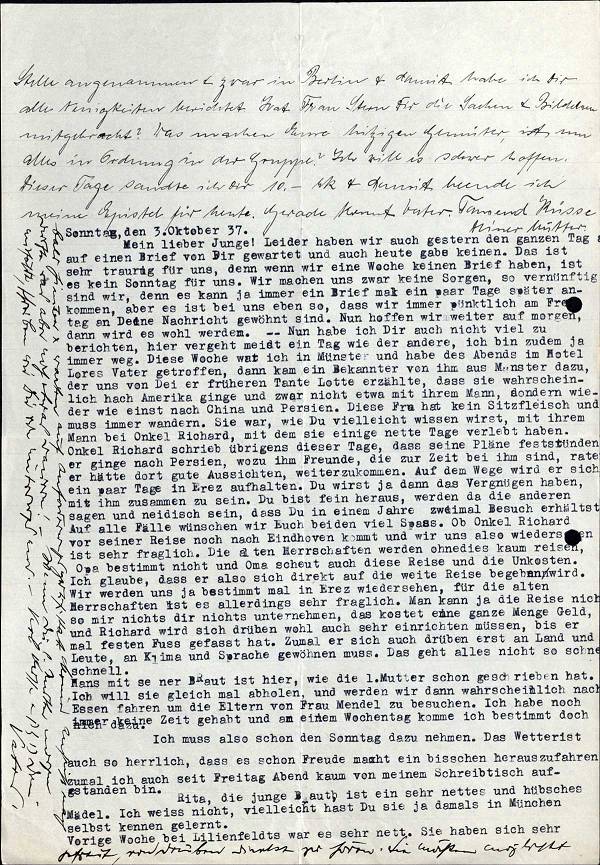 Stelle angenommen & zwar in Berlin & damit habe ich Dir
alle Neuigkeiten berichtet. Hat Frau Stern Dir die Sachen & Bilder
mitgebracht? Was machen Eure hitzigen Gemüter, ist nun
alles in Ordnung in der Gruppe? Ich will es schwer hoffen.
Dieser Tage sandte ich Dir 10.- Mk & damit beende ich
meine Epistel für heute. Gerade kommt Vater. Tausend Küsse
Deiner Mutter.
Sonntag, den 3.Oktober 37.
Mein lieber Junge! Leider haben wir auch gestern den ganzen Tag a
auf einen Brief von Dir gewartet und auch heute gabs keinen. Das ist
sehr traurig für uns, denn wenn wir eine Woche keinen Brief haben, ist
es kein Sonntag für uns. Wir machen uns zwar keine Sorgen, so vernünftig
sind wir, denn es kann ja immer ein Brief mal ein paar Tage später an-
kommen, aber es ist bei uns eben so, dass wir immer pünktlich am Frei
tag an Deine Nachricht gewöhnt sind. Nun hoffen wir weiter auf morgen,
dann wird es wohl werden. -- Nun habe ich Dir auch nicht viel zu
berichten, hier vergeht meist ein Tag wie der andere, ich bin zudem ja
immer weg. Diese Woche war ich in Münster und habe des Abends im Hotel
Lores Vater getroffen, dann kam ein Bekannter von ihm aus Münster dazu,
der uns von Dei er früheren Tante Lotte erzählte, dass sie wahrschein-
lich nach Amerika ginge und zwar nicht etwa mit ihrem Mann, sondern wie-
der wie einst nach China und Persien. Diese Fra hat kein Sitzfleisch und
muss immer wandern. Sie war, wie Du vielleicht wissen wirst, mit ihrem
Mann bei Onkel Richard, mit dem sie einige nette Tage verlebt haben.
Onkel Richard schrieb übrigens dieser Tage, dass seine Pläne feststünden
er ginge nach Persien, wozu ihm Freunde, die zur Zeit bei ihm sind, raten
er hätte dort gute Aussichten, weiterzukommen. Auf dem Wege wird er sich
ein paar Tage in Erez aufhalten. Du wirst ja dann das Vergnügen haben,
mit ihm zusammen zu sein. Du bist fein heraus, werden da die anderen
sagen und neidisch sein, dass Du in einem Jahre zweimal Besuch erhältst
Auf alle Fälle wünschen wir Euch beiden viel Spass. Ob Onkel Richard
vor seiner Reise noch nach Eindhoven kommt und wir uns also wiedersehen
ist sehr fraglich. Die alten Herrschaften werden ohnedies kaum reisen,
Opa bestimmt nicht und Oma scheut auch diese Reise und die Unkosten.
Ich glaube, dass er also sich direkt auf die weite Reise begeben wird.
Wir werden uns ja bestimmt mal in Erez wiedersehen, für die alten
Herrschaften ist es allerdings sehr fraglich. Man kann ja die Reise nich
so mir nichts dir nichts unternehmen, das kostet eine ganze Menge Geld,
und Richard wird sich drüben wohl auch sehr einrichten müssen, bis er
mal festen Fuss gefasst hat. Zumal er sich auch drüben erst an Land und
Leute, an Klima und Sprache gewöhnen muss. Das geht alles nicht so schne
schnell.
Hans mit se ner Braut ist hier, wie die l.Mutter schon geschrieben hat.
Ich will sie gleich mal abholen, und werden wir dann wahrscheinlich nach
Essen fahren um die Eltern von Frau Mendel zu besuchen. Ich habe noch
immer keine Zeit gehabt und an einem Wochentag komme ich bestimmt doch
nich dazu.
Ich muss also schon den Sonntag dazu nehmen. Das Wetterist
auch so herrlich, dass es schon Freude macht ein bisschen herauszufahren
zumal ich auch seit Freitag Abend kaum von meinem Schreibtisch auf-
gstanden bin.
Rita, die junge Braut, ist ein sehr nettes und hübsches
Mädel. Ich weiss nicht, vielleicht hast Du sie ja damals in München
selbst kennen gelernt.
Vorige Woche bei Lilienfeldts war es sehr nett. Sie haben sich sehr
gefreut,
Vater.